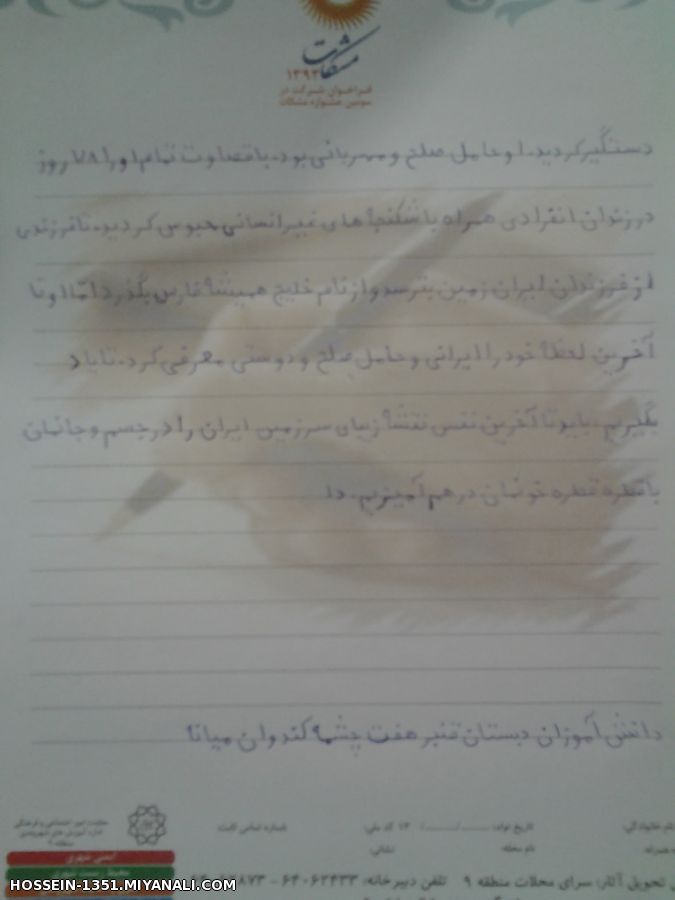 مشکات
۱۳۹۳
فراخوان شرکت در
سومین جشنواره مشکات
دستگیر کردید. او حامل صلح و مهربانی بود. با قضاوت تمام او را ۷۸ روز
در زندان انفرادی همراه با شکنجه های غیر انسانی حبوس کردید. تا فرزندی
از فرزندان ایران زمین بترسد و از نام خلیج همیشه فارس بگذرد امّا او تا
آخرین لحظه خود را ایرانی و حامل صلح و دوستی معرفی کرد. تا یاد
بگیریم. بایو تا آخرین نفس نقشه زیبای سرزمین ایران را در جسم و جانمان
با قطره قطره خونمان در هم آمیزیم.
دانش آموزان دبستان قنبر هفت چشمه کندوان میانه
نام خانوادگی:
تاریخ تولد: ....../....../ ۱۳ کد ملی:
شماره تماس ثابت:
همراه:
نام محله:
نشانی:
معاونت امور اجتماعی و فرهنگی
اداره آموزش های شهروندی
منطقه ۹
ایمنی شهری
محیط زیست شهری
تحویل آثار: سرای محلات منطقه ۹ تلفن دبیرخانه: ۶۴۰۶۲۴۳۳ -
HOSSEIN-1351.MIYANALI.COM